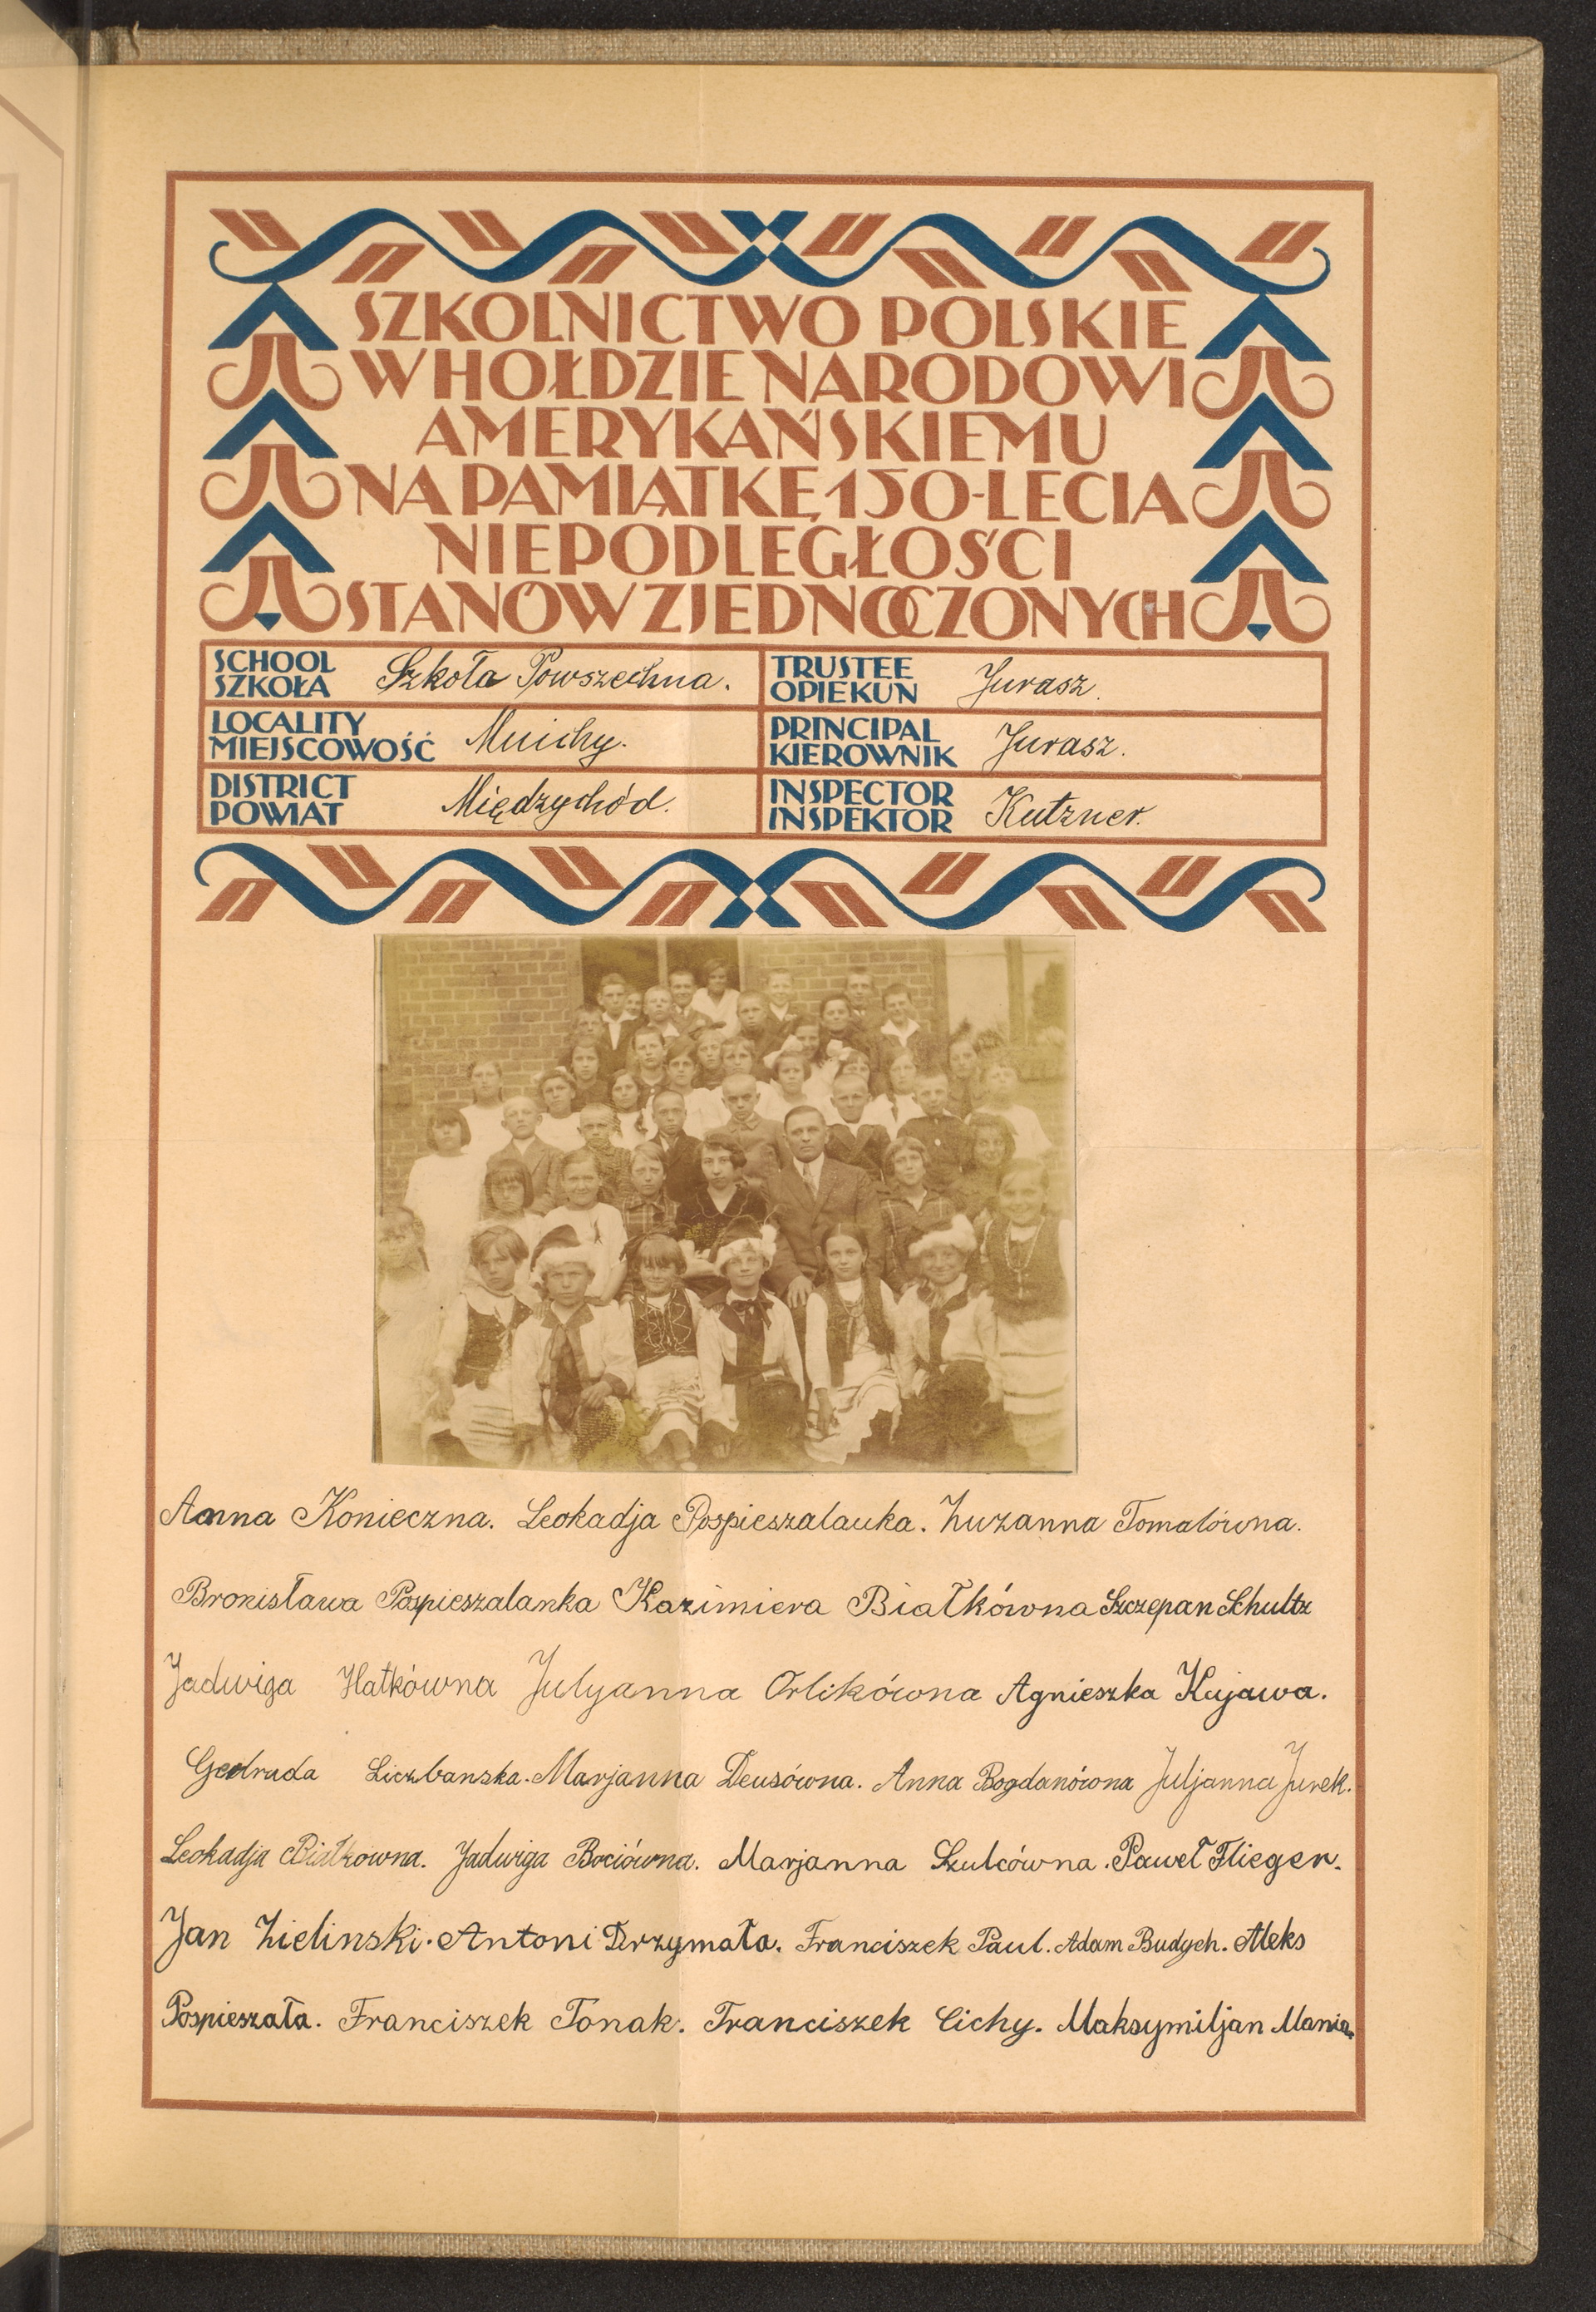 SZKOLNICTWO POLSKIE
W HOŁDZIE NARODOWI
AMERYKAŃSKIEMU
NA PAMIĄTKĘ 150-LECIA
NIEPODLEGŁOŚCI
STANÓW ZJEDNOCZONYCH
SCHOOL
SZKOŁA
Szkoła Powszechna.
TRUSTEE
OPIEKUN
Jurasz.
LOCALITY
MIEJSCOWOŚĆ
Mnichy.
PRINCIPAL
KIEROWNIK
Jurasz.
DISTRICT
POWIAT
Międzychód.
INSPECTOR
INSPEKTOR
Kutzner.
Anna Konieczna. Leokadja Pospieszalanka. Zuzanna Tomalówna.
Bronisława Pospieszalanka Kazimiera Białkówna Szczepan Schultz
Jadwiga Hatkówna Julyanna Orlikówna Agnieszka Kujawa.
Liczbanska. Marjanna Deusówna. Anna Bogdanówna Juljanna Jurek.
Leokadja Białkowna. Jadwiga Bociówna. Marjanna Szulcówna. Paweł Flieger.
Jan Zielinski. Antoni Drzymała. Franciszek Paul. Adam Budych. Aleks
Pospieszała. Franciszek Tonak. Franciszek Cichy. Maksymiljan Mania.